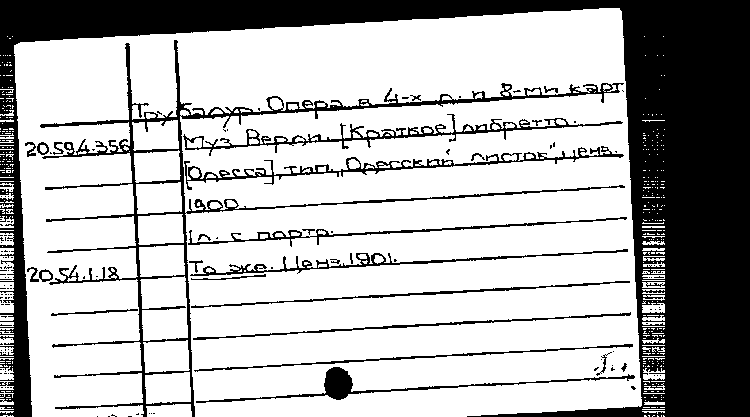 Трубадур. Опера в 4-х д. и 8-ми карт
20.59.4.356 Муз Верди. [Краткое] либретто.
[Одесса], тип. „Одесский листок", ценз.
1900.
1 л. с портр.
20.54.1.18 То же. Ценз. 1901.